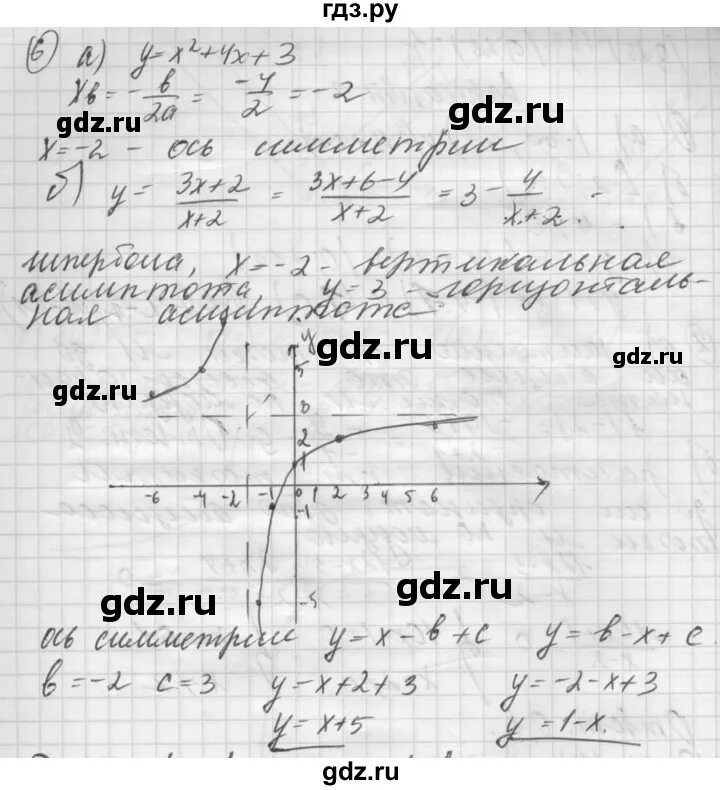 гдз.ру
6 а) y = x² + 4x + 3
xв = -в/2а = -4/2 = -2
gdz.ru gdz.ru
x = -2 - ось симметрии
б) y = 3x+2/x+2 = 3x+6-4/x+2 = 3 - 4/x+2 -
gdz.ru gdz.ru
гипербола, x = -2 - вертикальная
асимптота, y = 3 - горизонталь-
ная асимптота
gdz.ru
y
5
gdz.ru gdz.ru
3
2
1
-6 -4 -2 -1 0 1 2 3 4 5 6
-1
gdz.ru gdz.ru
-5
ось симметрии y = x - в + c y = в - x + c
в = -2 c = 3 y = x + 2 + 3 y = -2 - x + 3
y = x + 5 y = 1 - x.
gdz.ru